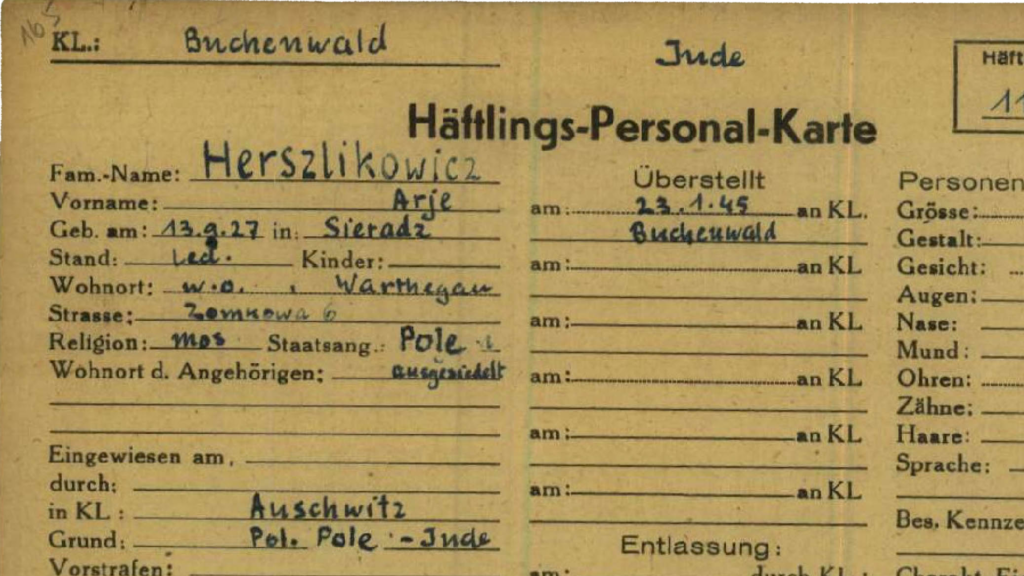 165
KL.: Buchenwald
Jude
Häft
11
Häftlings-Personal-Karte
Fam.-Name: Herszlikowicz
Vorname: Arje
Geb. am: 13.9.27 in: Sieradz
Stand: led. Kinder:
Wohnort: w.o. , Warthegau
Strasse: Zomkowa 6
Religion: mos Staatsang.: Pole
Wohnort d. Angehörigen: ausgesiedelt
Eingewiesen am,
durch:
in KL: Auschwitz
Grund: Pol. Pole - Jude
Vorstrafen:
Überstellt
am: 23.1.45 an KL.
Buchenwald
am: an KL
am: an KL
am: an KL
am: an KL
am: an KL
Entlassung:
am: durch KL:
Personen
Grösse:
Gestalt:
Gesicht:
Augen:
Nase:
Mund:
Ohren:
Zähne:
Haare:
Sprache:
Bes. Kennze